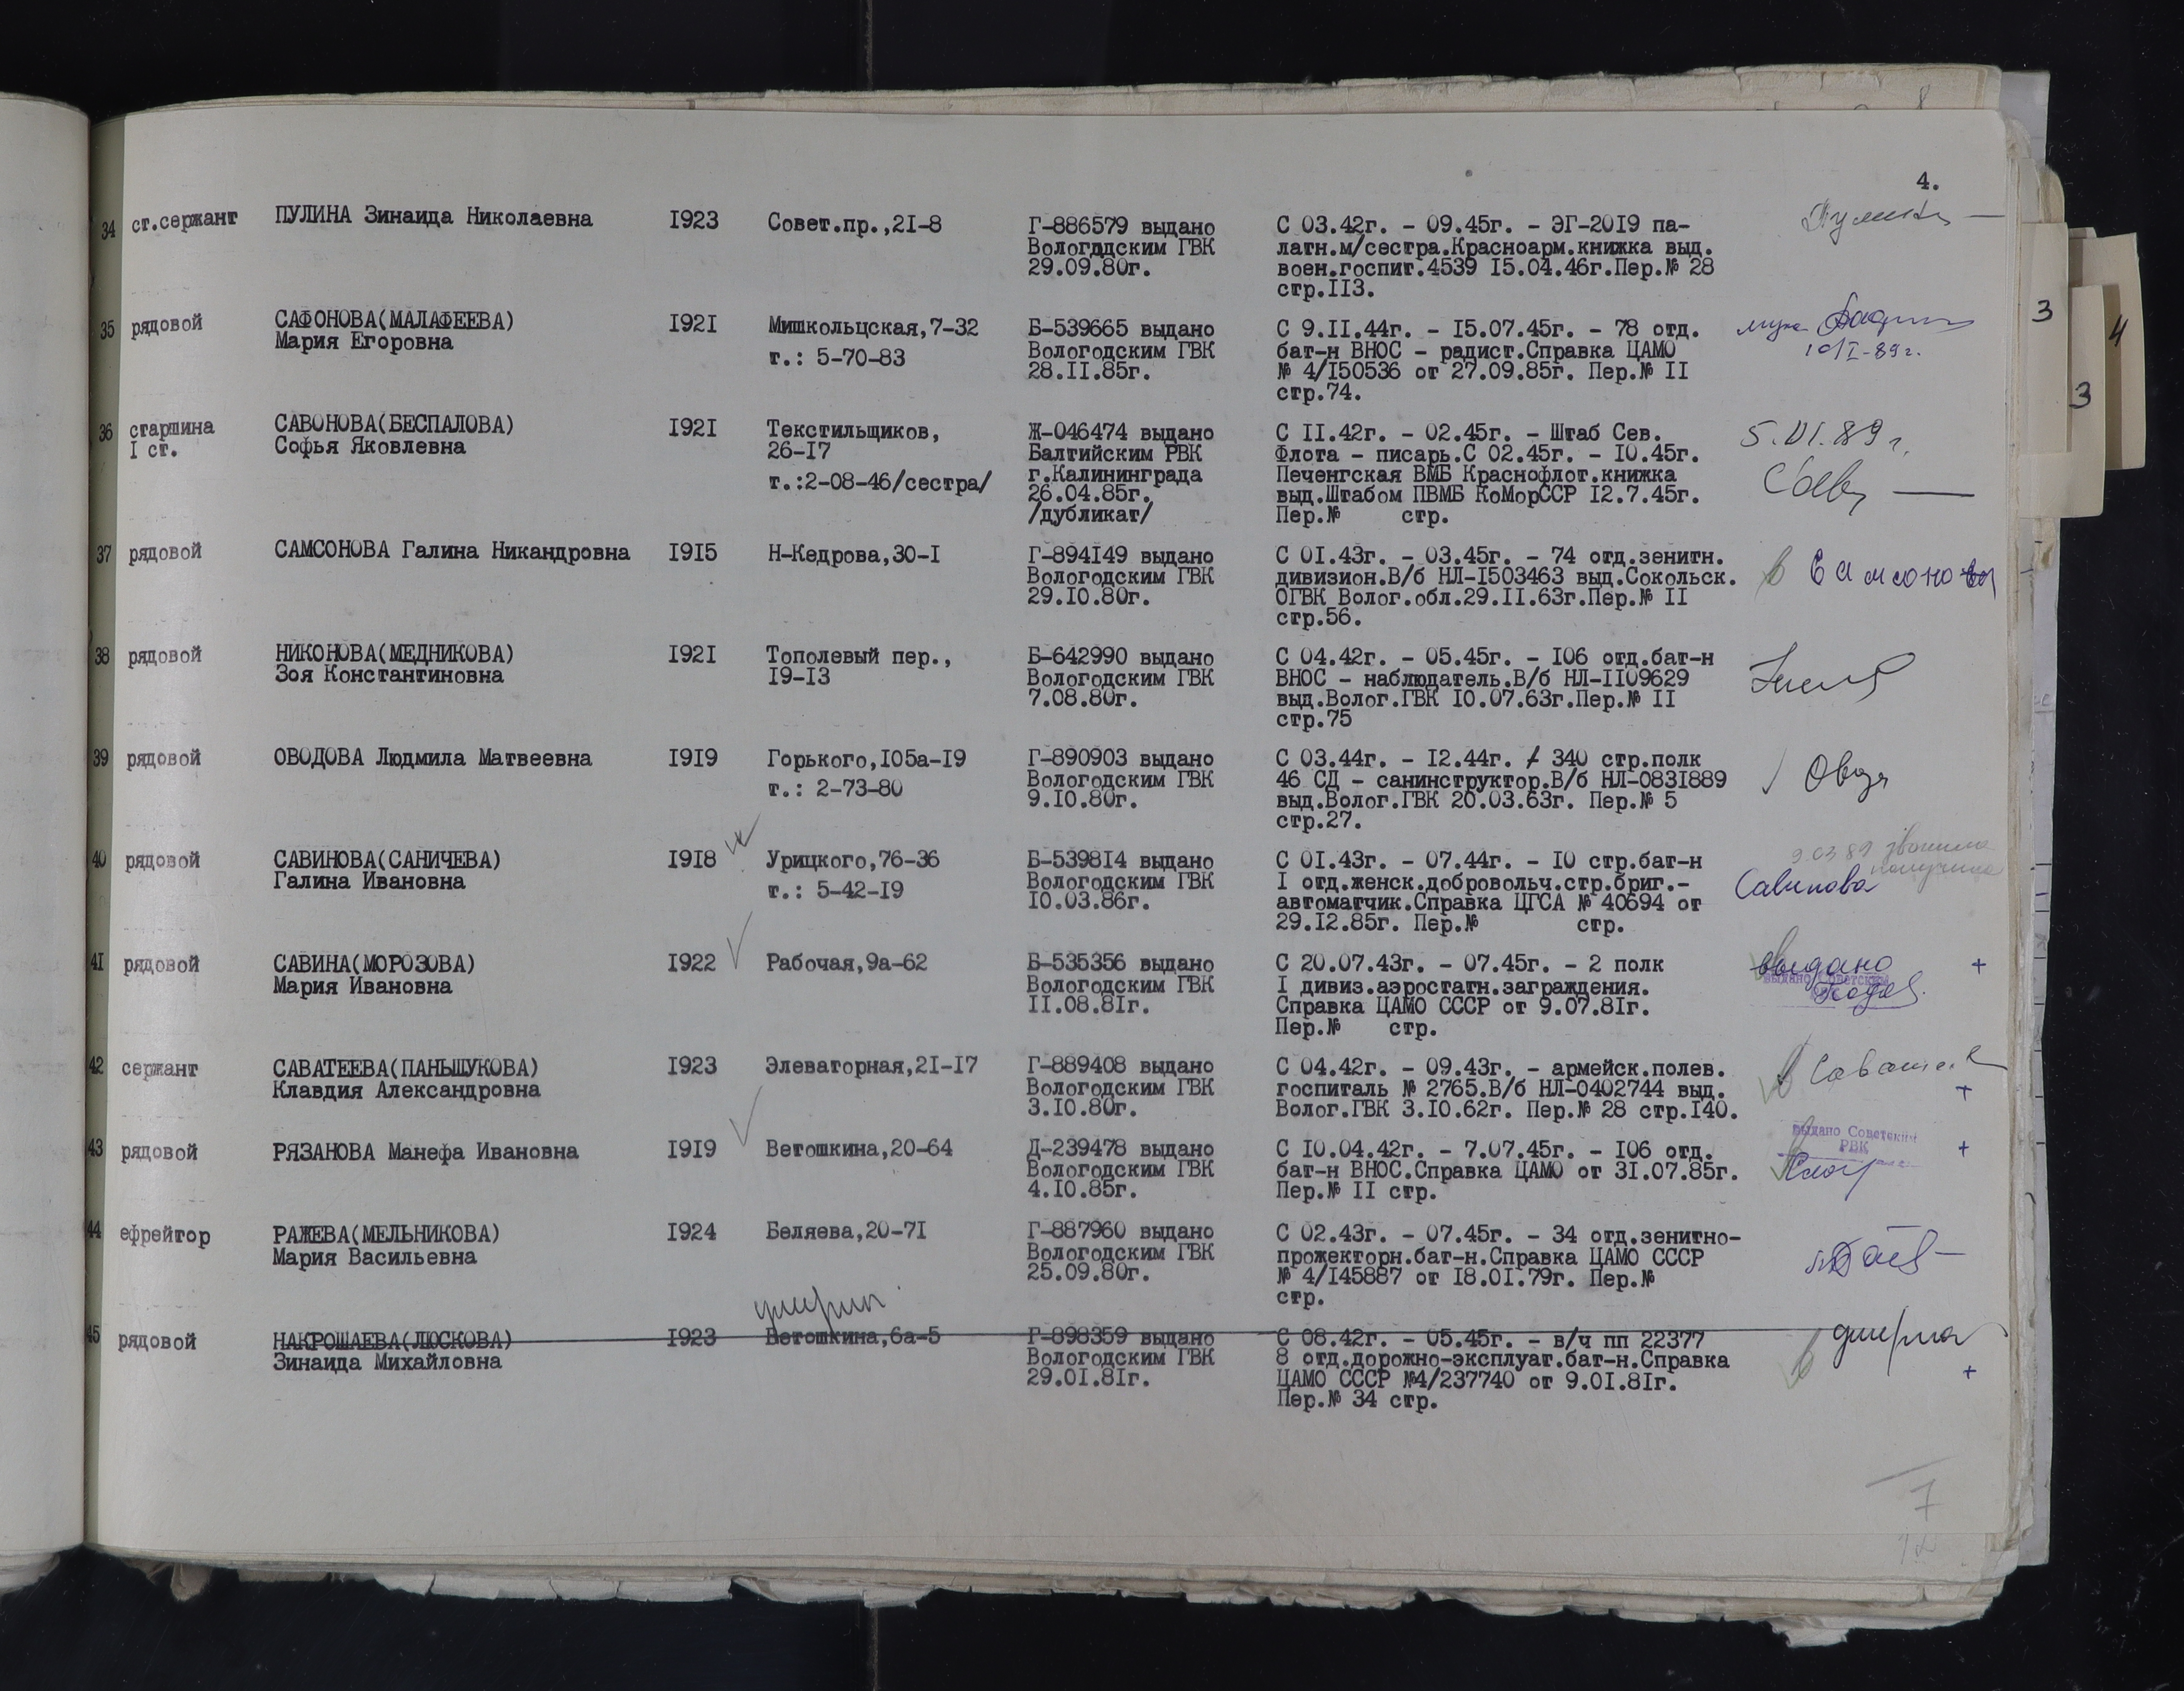 4.
34 ст.сержант ПУЛИНА Зинаида Николаевна I923 Совет.пр.,2I-8 Г-886579 выдано С 03.42г. - 09.45г. - ЭГ-20I9 па-
Вологддским ГВК латн.м/сестра.Красноарм.книжка выд.
29.09.80г. воен.госпит.4539 I5.04.46г.Пер.№ 28
стр.II3.
35 рядовой САФОНОВА(МАЛАФЕЕВА) I92I Мишкольцская,7-32 Б-539665 выдано С 9.II.44г. - I5.07.45г. - 78 отд.
Мария Егоровна т.: 5-70-83 Вологодским ГВК бат-н ВНОС - радист.Справка ЦАМО
28.II.85г. № 4/I50536 от 27.09.85г. Пер.№ II
стр.74.
36 старшина САВОНОВА(БЕСПАЛОВА) I92I Текстильщиков, Ж-046474 выдано С II.42г. - 02.45г. - Штаб Сев. 5.VI.89г.
I ст. Софья Яковлевна 26-I7 Балтийским РВК Флота - писарь.С 02.45г. - I0.45г.
т.:2-08-46/сестра/ г.Калининграда Печенгская ВМБ Краснофлот.книжка
26.04.85г. выд.Штабом ПВМБ КоМорССР I2.7.45г.
/дубликат/ Пер.№ стр.
37 рядовой САМСОНОВА Галина Никандровна I9I5 Н-Кедрова,30-I Г-894I49 выдано С 0I.43г. - 03.45г. - 74 отд.зенитн.
Вологодским ГВК дивизион.В/б НЛ-I503463 выд.Сокольск. Самсонова
29.I0.80г. ОГВК Волог.обл.29.II.63г.Пер.№ II
стр.56.
38 рядовой НИКОНОВА(МЕДНИКОВА) I92I Тополевый пер., Б-642990 выдано С 04.42г. - 05.45г. - I06 отд.бат-н
Зоя Константиновна I9-I3 Вологодским ГВК ВНОС - наблюдатель.В/б НЛ-II09629
7.08.80г. выд.Волог.ГВК I0.07.63г.Пер.№ II
стр.75
39 рядовой ОВОДОВА Людмила Матвеевна I9I9 Горького,I05а-I9 Г-890903 выдано С 03.44г. - I2.44г. / 340 стр.полк
т.: 2-73-80 Вологодским ГВК 46 СД - санинструктор.В/б НЛ-083I889
9.I0.80г. выд.Волог.ГВК 20.03.63г. Пер.№ 5
стр.27.
40 рядовой САВИНОВА(САНИЧЕВА) I9I8 Урицкого,76-36 Б-5398I4 выдано С 0I.43г. - 07.44г. - I0 стр.бат-н
Галина Ивановна т.: 5-42-I9 Вологодским ГВК I отд.женск.добровольч.стр.бриг.- Савинова
I0.03.86г. автоматчик.Справка ЦГСА № 40694 от
29.I2.85г. Пер.№ стр.
4I рядовой САВИНА(МОРОЗОВА) I922 Рабочая,9а-62 Б-535356 выдано С 20.07.43г. - 07.45г. - 2 полк выдано +
Мария Ивановна Вологодским ГВК I дивиз.аэростатн.заграждения.
II.08.8Iг. Справка ЦАМО СССР от 9.07.8Iг.
Пер.№ стр.
42 сержант САВАТЕЕВА(ПАНЬШУКОВА) I923 Элеваторная,2I-I7 Г-889408 выдано С 04.42г. - 09.43г. - армейск.полев.
Клавдия Александровна Вологодским ГВК госпиталь № 2765.В/б НЛ-0402744 выд. +
3.I0.80г. Волог.ГВК 3.I0.62г. Пер.№ 28 стр.I40.
43 рядовой РЯЗАНОВА Манефа Ивановна I9I9 Ветошкина,20-64 Д-239478 выдано С I0.04.42г. - 7.07.45г. - I06 отд. выдано Советским РВК +
Вологодским ГВК бат-н ВНОС.Справка ЦАМО от 3I.07.85г.
4.I0.85г. Пер.№ II стр.
44 ефрейтор РАЖЕВА(МЕЛЬНИКОВА) I924 Беляева,20-7I Г-887960 выдано С 02.43г. - 07.45г. - 34 отд.зенитно-
Мария Васильевна Вологодским ГВК прожекторн.бат-н.Справка ЦАМО СССР
25.09.80г. № 4/I45887 от I8.0I.79г. Пер.№
стр.
умерла
45 рядовой НАКРОШАЕВА(ЛЮСКОВА) I923 Ветошкина,6а-5 Г-898359 выдано С 08.42г. - 05.45г. - в/ч пп 22377 умерла
Зинаида Михайловна Вологодским ГВК 8 отд.дорожно-эксплуат.бат-н.Справка
29.0I.8Iг. ЦАМО СССР №4/237740 от 9.0I.8Iг. +
Пер.№ 34 стр.
7
3
4
3